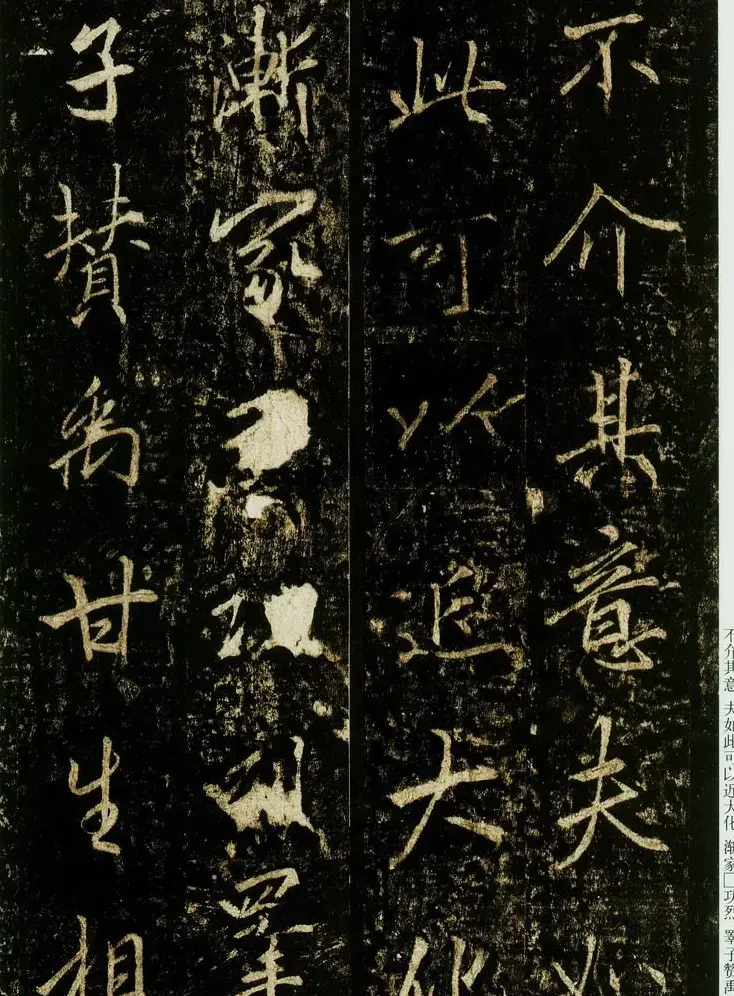 不介其意夫如
此可以追大化
漸家功烈睪
子贊禹甘生相
不介其意 夫如此可以近大化 渐家□功烈 睪子赞禹